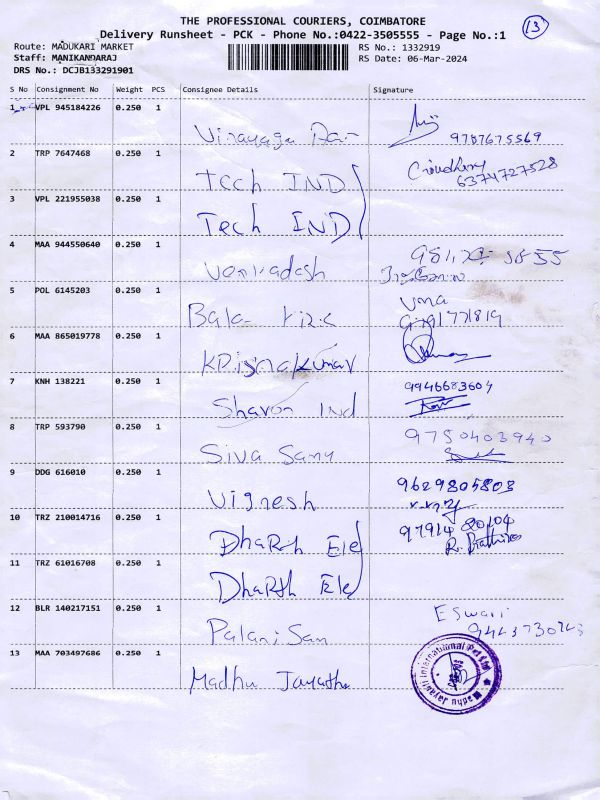 THE PROFESSIONAL COURIERS, COIMBATORE
Delivery Runsheet - PCK - Phone No.:0422-3505555 - Page No.:1
13
Route: MADUKARI MARKET
RS No.: 1332919
Staff: MANIKANDARAJ
RS Date: 06-Mar-2024
DRS No.: DCJB133291901
S No Consignment No Weight PCS Consignee Details Signature
1 VPL 945184226 0.250 1
9787675569
2 TRP 7647468 0.250 1 Tech IND
6374727528
3 VPL 221955038 0.250 1 Tech IND
4 MAA 944550640 0.250 1 Venkadesh
5 POL 6145203 0.250 1 Bala Uma
6 MAA 865019778 0.250 1 KRisnakumar
7 KNH 138221 0.250 1 Sharon Ind 9946683604
8 TRP 593790 0.250 1 Siva Samy 9750403940
9 DDG 616010 0.250 1 Vignesh 9629805803
10 TRZ 210014716 0.250 1 DhaRsh Ele 97914 80104
11 TRZ 61016708 0.250 1 DhaRsh Ele
12 BLR 140217151 0.250 1 Palani Sam Eswari
13 MAA 703497686 0.250 1 Madhu Jayanthi